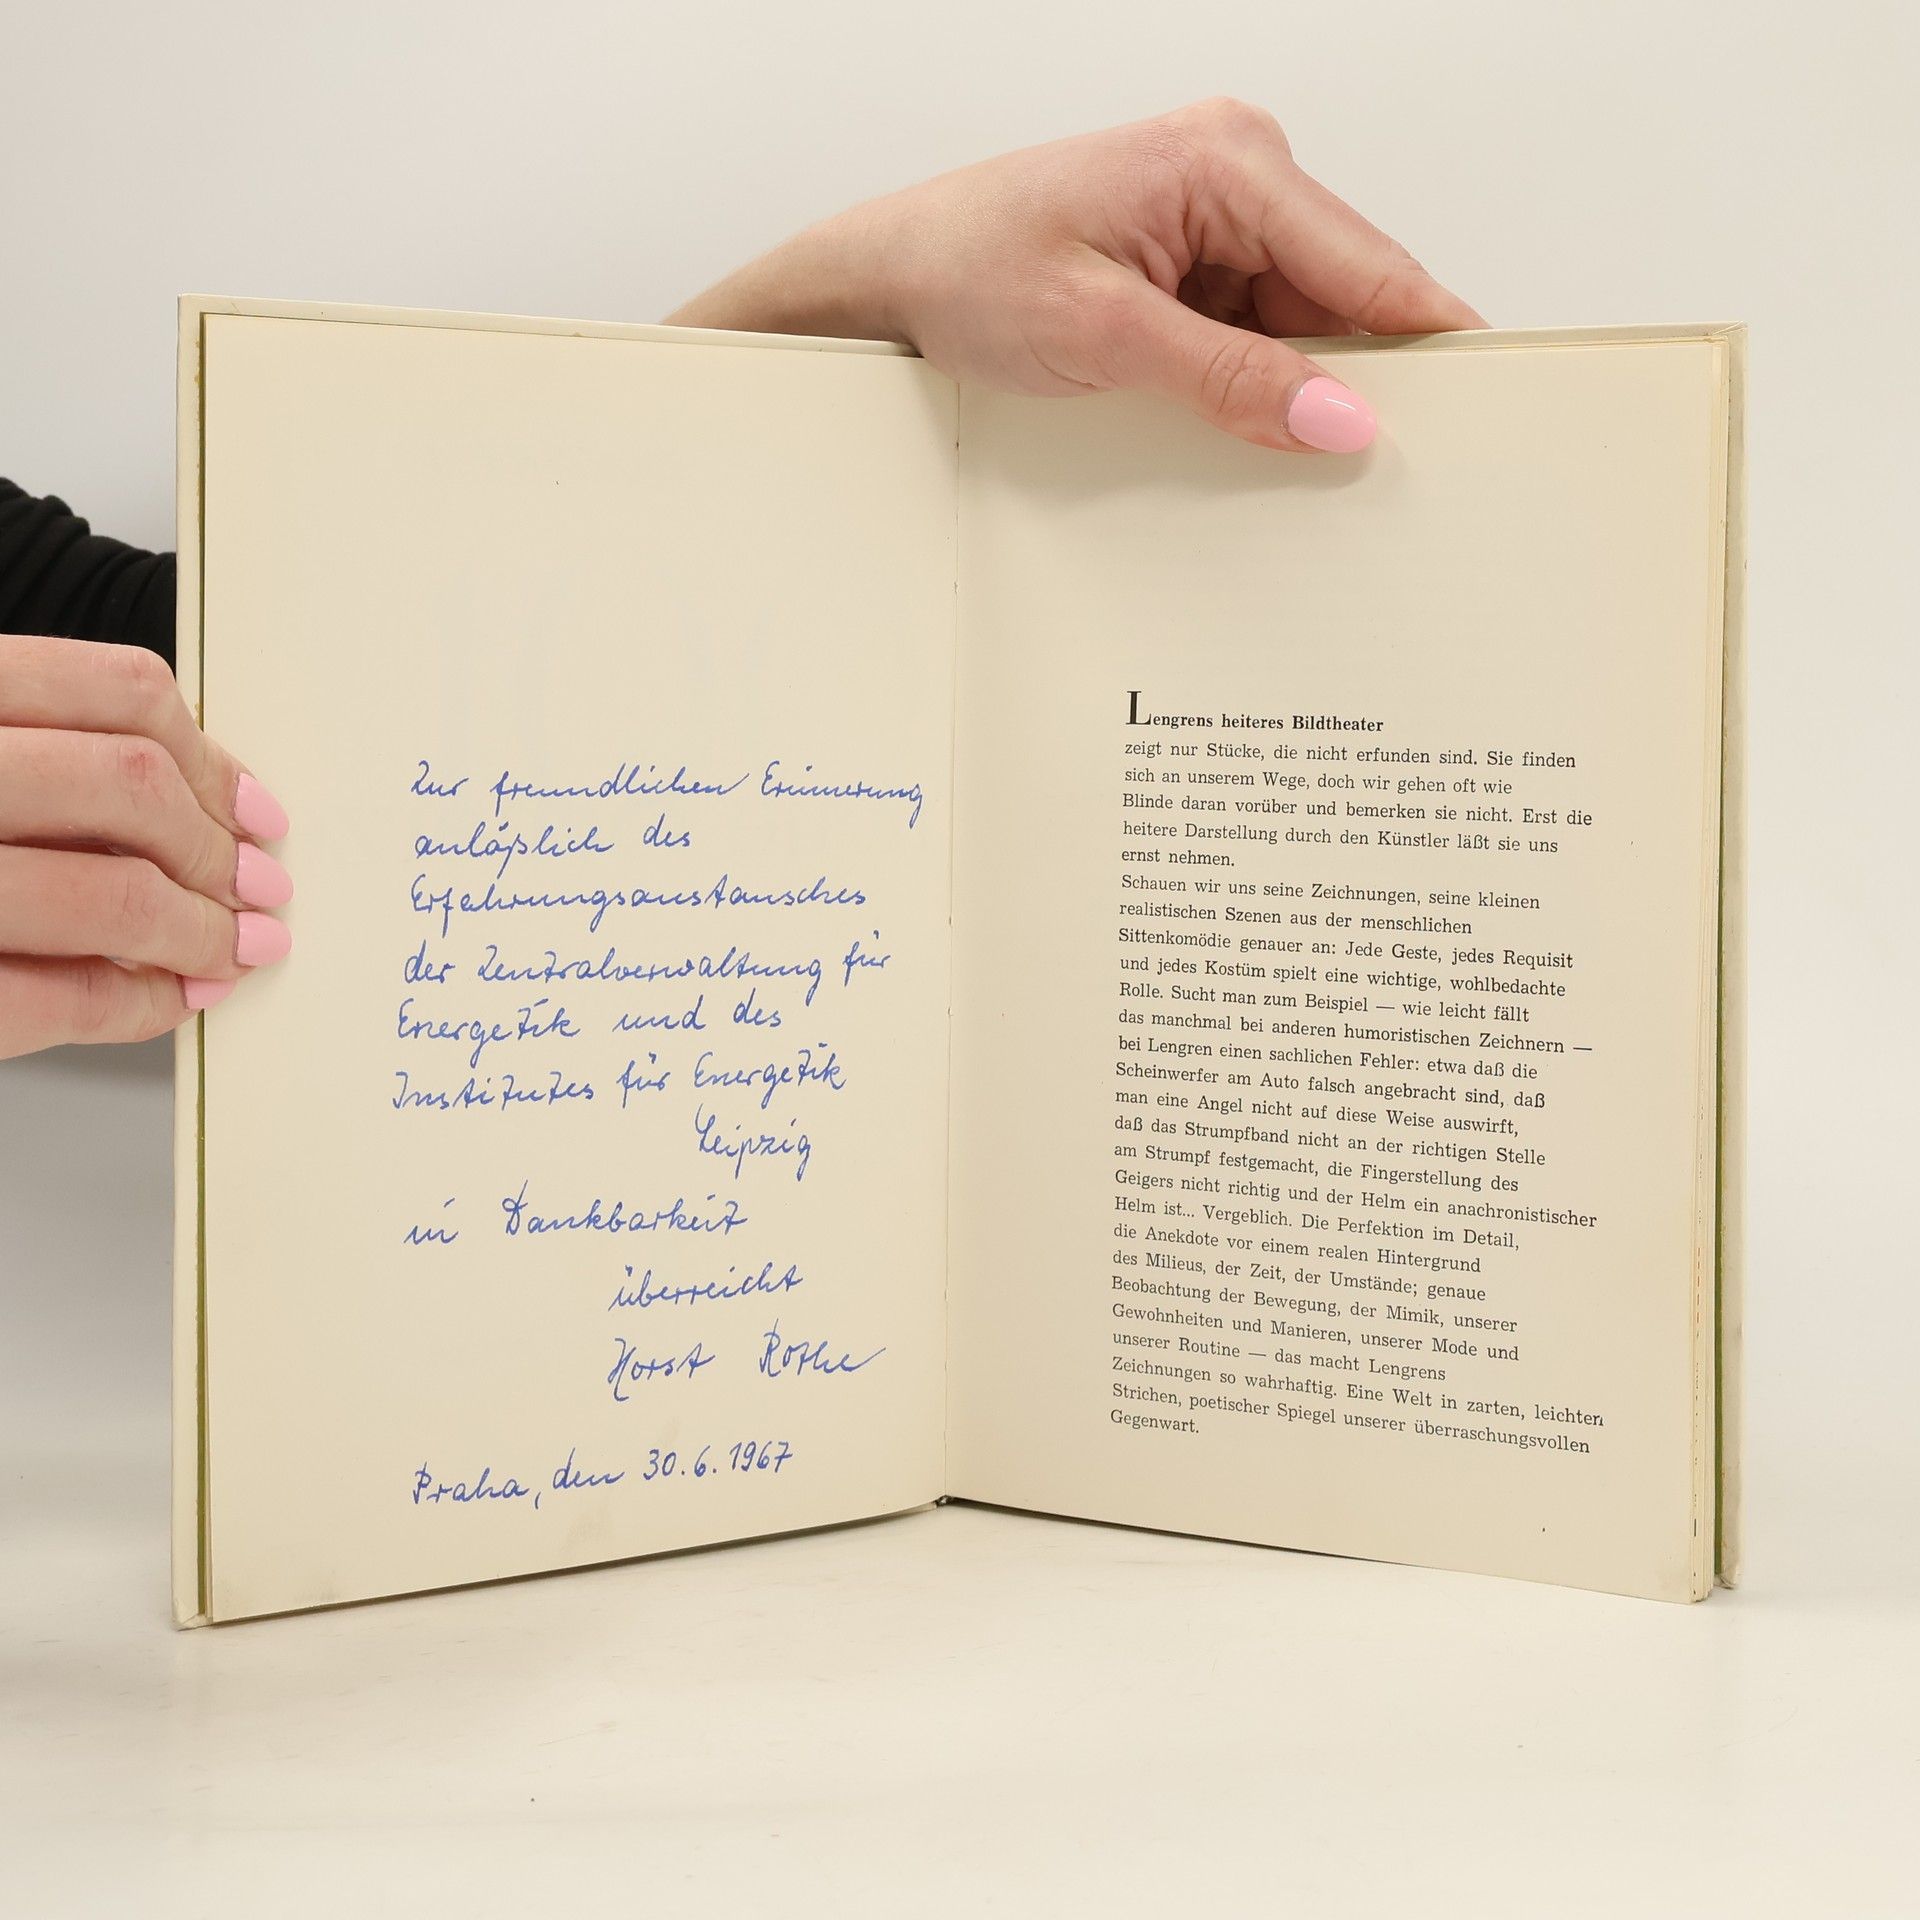 Zur freundlichen Erinnerung
anläßlich des
Erfahrungsaustausches
der Zentralverwaltung für
Energetik und des
Institutes für Energetik
Leipzig
in Dankbarkeit
überreicht
Horst Rothe
Praha, den 30.6.1967
Lengrens heiteres Bildtheater
zeigt nur Stücke, die nicht erfunden sind. Sie finden
sich an unserem Wege, doch wir gehen oft wie
Blinde daran vorüber und bemerken sie nicht. Erst die
heitere Darstellung durch den Künstler läßt sie uns
ernst nehmen.
Schauen wir uns seine Zeichnungen, seine kleinen
realistischen Szenen aus der menschlichen
Sittenkomödie genauer an: Jede Geste, jedes Requisit
und jedes Kostüm spielt eine wichtige, wohlbedachte
Rolle. Sucht man zum Beispiel — wie leicht fällt
das manchmal bei anderen humoristischen Zeichnern —
bei Lengren einen sachlichen Fehler: etwa daß die
Scheinwerfer am Auto falsch angebracht sind, daß
man eine Angel nicht auf diese Weise auswirft,
daß das Strumpfband nicht an der richtigen Stelle
am Strumpf festgemacht, die Fingerstellung des
Geigers nicht richtig und der Helm ein anachronistischer
Helm ist... Vergeblich. Die Perfektion im Detail,
die Anekdote vor einem realen Hintergrund
des Milieus, der Zeit, der Umstände; genaue
Beobachtung der Bewegung, der Mimik, unserer
Gewohnheiten und Manieren, unserer Mode und
unserer Routine — das macht Lengrens
Zeichnungen so wahrhaftig. Eine Welt in zarten, leichten
Strichen, poetischer Spiegel unserer überraschungsvollen
Gegenwart.